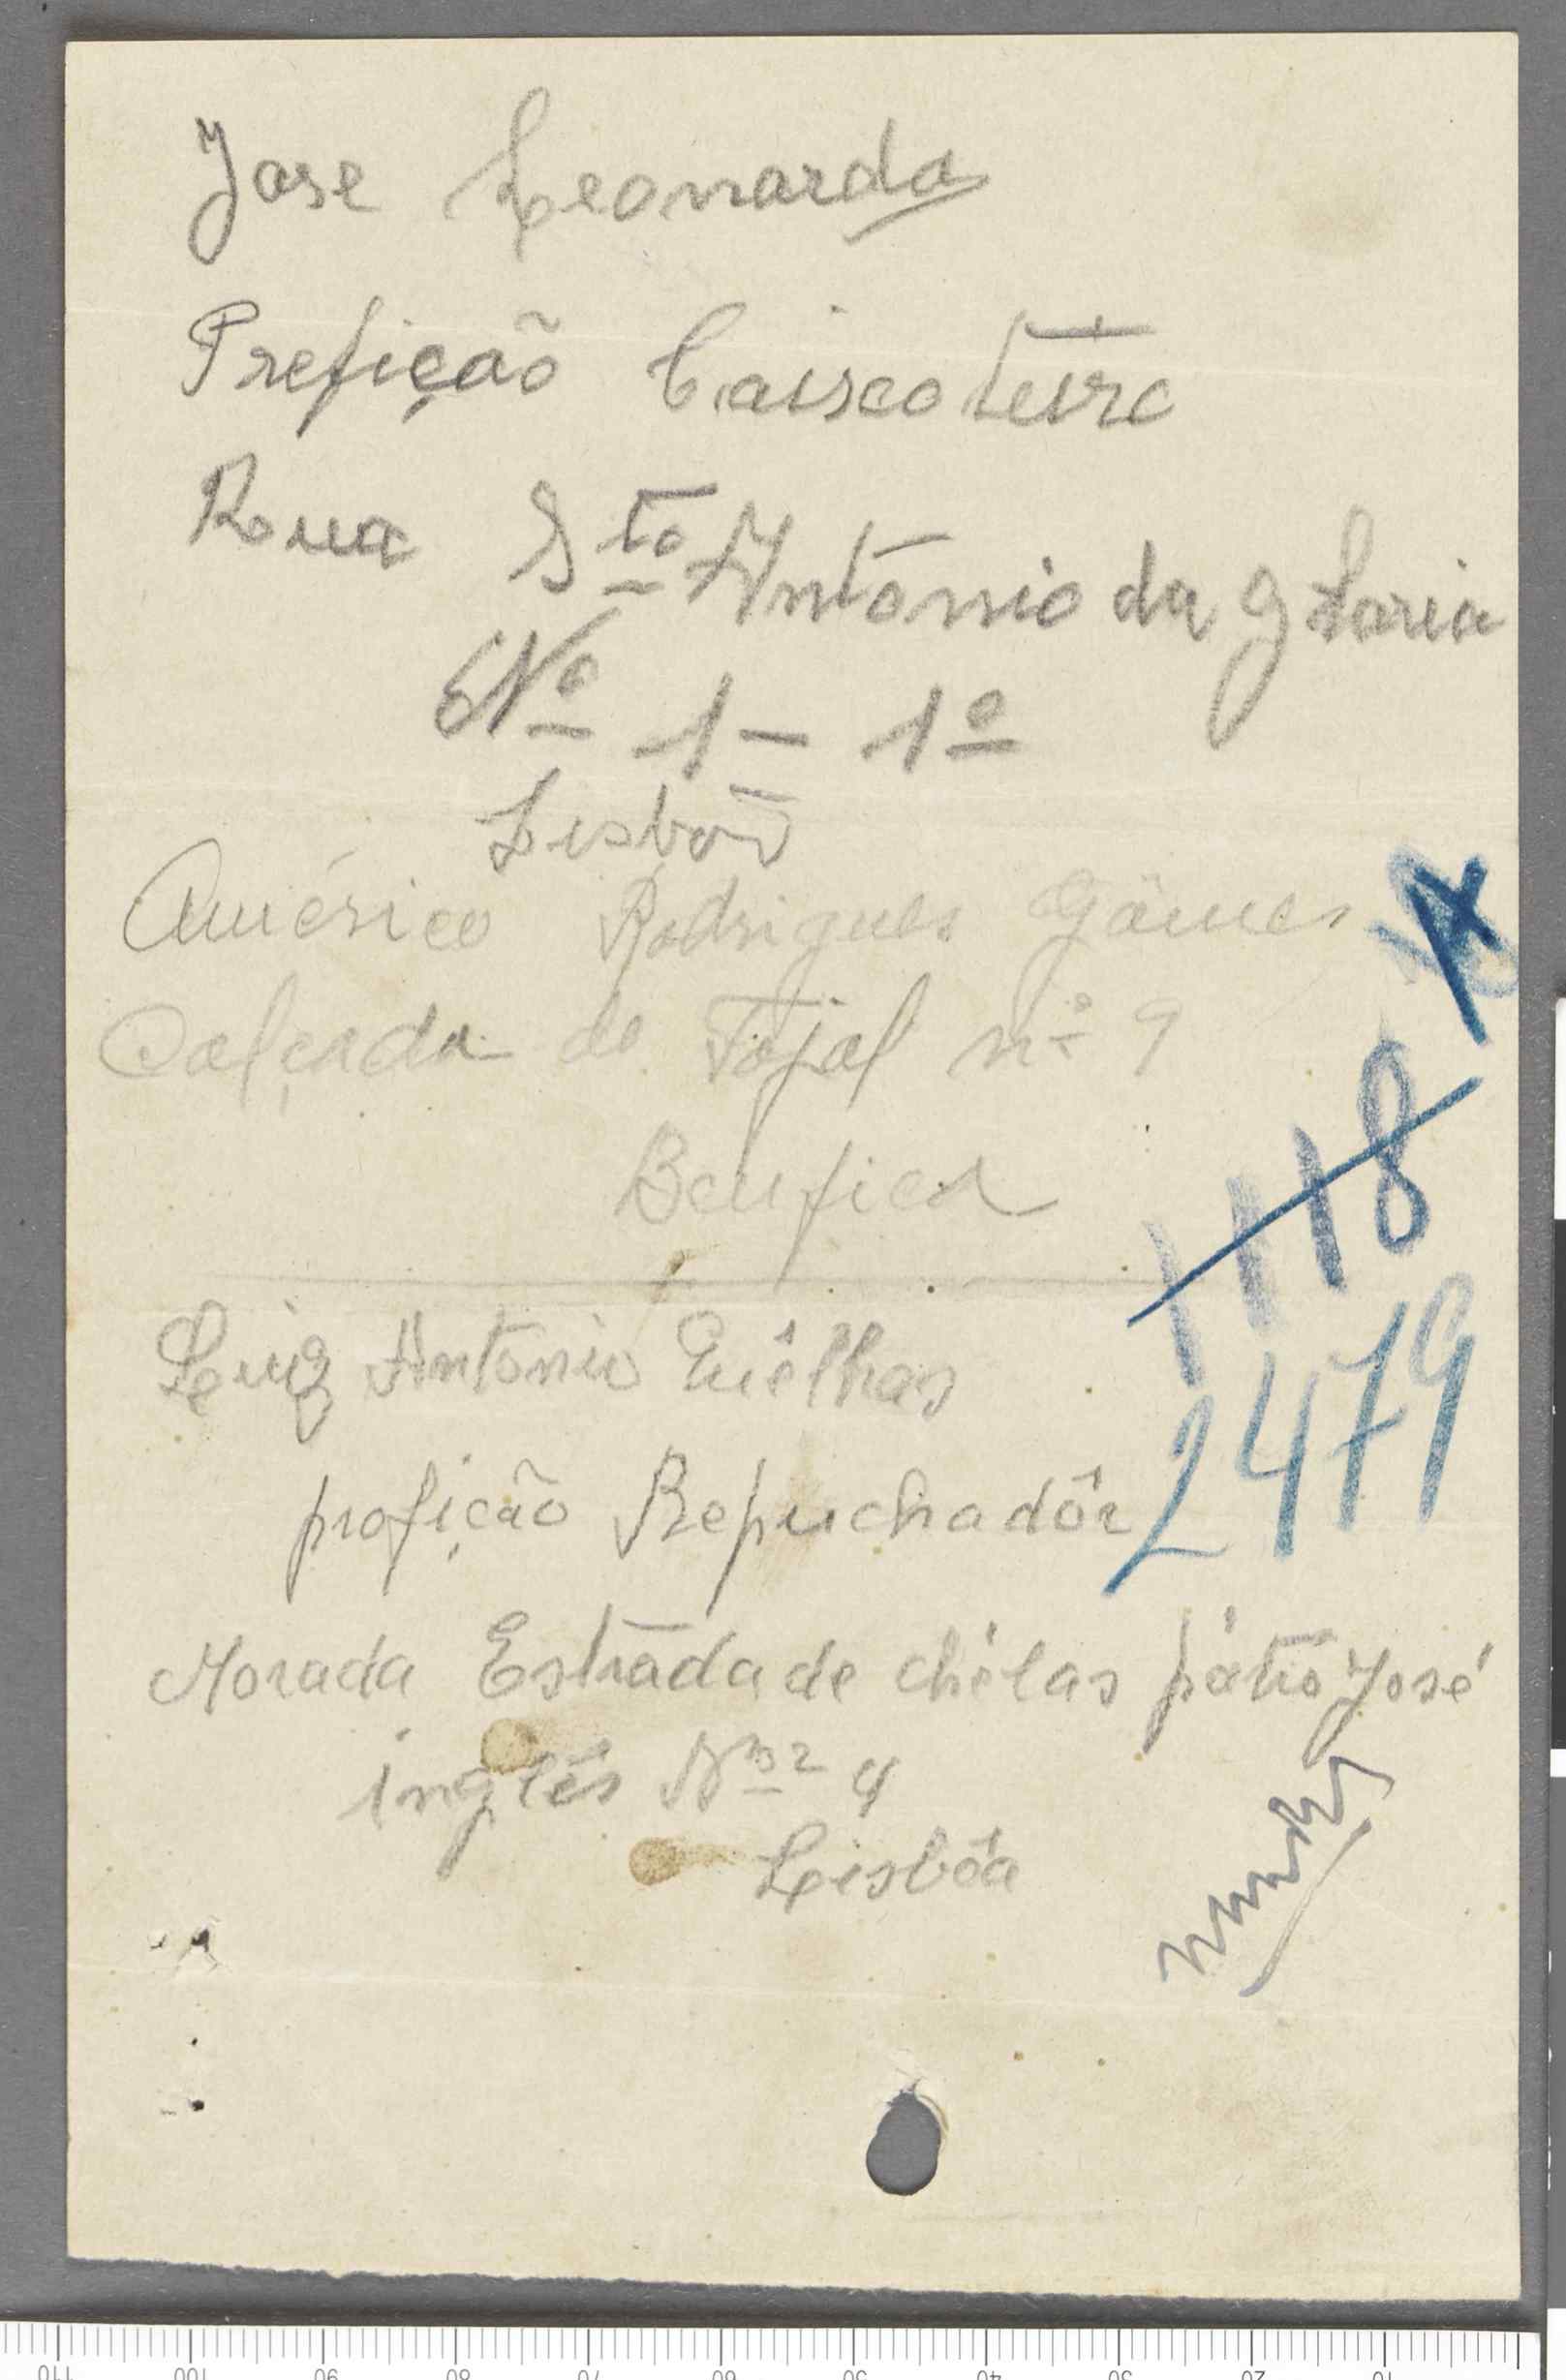 Jose Leonardo
Prefição Caiscoteiro
Rua Sto Antonio da gloria
Nº 1 - 1º
Lisboa
Américo Rodrigues Gômes
Calçada do Tojal nº 9
Benfica
Luiz Antonio Quêlhas
profição Repuchadôr
Morada Estrada de chélas pátio José
inglês Nº 4
Lisbôa
1118
2479